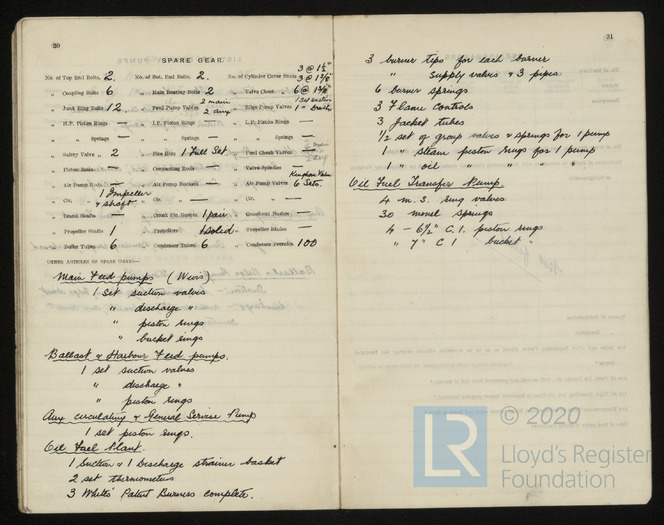 30
SPARE GEAR.
3 @ 1½"
No. of Top End Bolts, 2. No. of Bot. End Bolts, 2. No. of Cylinder Cover Studs 3 @ 1¾"
„ Coupling Bolts 6 „ Main Bearing Bolts 2 „ Valve Chest „ 6 @ 1⅜"
„ Junk Ring Bolts 12 „ Feed Pump Valves 2 main 2 aux „ Bilge Pump Valves 1 Set suction 1 „ Disch
„ H.P. Piston Rings — „ I.P. Piston Rings — „ L.P. Piston Rings —
„ „ Springs — „ „ Springs — „ „ Springs —
„ Safety Valve „ 2 „ Fire Bars 1 Full Set „ Feed Check Valves —
„ Piston Rods — „ Connecting Rods — „ Valve Spindles —
„ Air Pump Rods — „ Air Pump Buckets — „ Air Pump Valves Kinghorn Valve 6 Sets.
„ Cir. „ 1 Impeller & shaft „ Cir. „ — „ Cir. „ —
„ Crank Shafts — „ Crank Pin Bushes 1 pair „ Crosshead Bushes —
„ Propeller Shafts 1 „ Propellers 1 Solid „ Propeller Blades —
„ Boiler Tubes 6 „ Condenser Tubes 6 „ Condenser Ferrules 100
OTHER ARTICLES OF SPARE GEAR:—
Main Feed pumps (Weirs)
1 Set suction valves
„ discharge „
„ piston rings
„ bucket rings
Ballast & Harbour Feed pumps.
1 set suction valves
„ discharge „
„ piston rings
Aux circulating & General Service Pump
1 set piston rings.
Oil Fuel Plant.
1 Suction & 1 Discharge strainer basket
2 set thermometers
3 White's Patent Burners complete.
31
3 burner tips for each burner
„ supply valves & 3 pipes
6 burner springs
3 Flame Controls
3 Jacket tubes
½ set of group valves & springs for 1 pump
1 „ steam piston rings for 1 pump
1 „ oil „ „ „ „
Oil Fuel Transfer Pump.
4 m.s. ring valves
30 monel springs
4 – 6½" C.I. piston rings
„ 7" C I bucket „
© 2020
LR
Lloyd's Register
Foundation